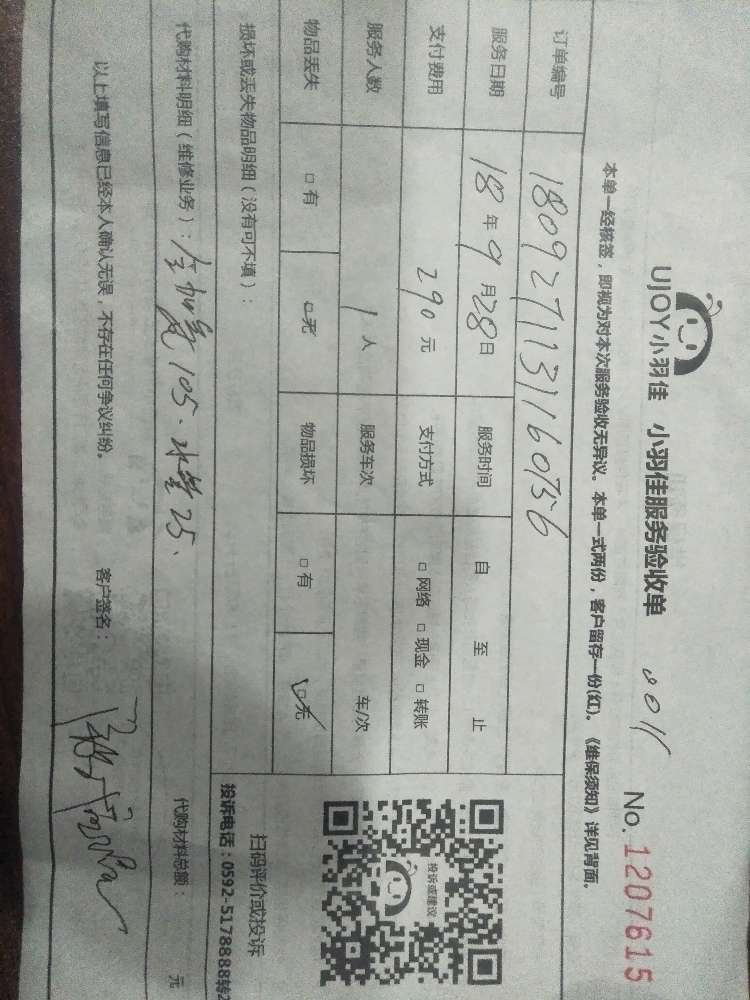 UJOY小羽佳 小羽佳服务验收单 No. 1207615
本单一经核签，即视为对本次服务验收无异议。本单一式两份，客户留存一份(红)。《维保须知》详见背面。
订单编号
服务日期 18年9月28日 服务时间 自 至 止
支付费用 290元 支付方式 □网络 □现金 □转账
服务人数 1人 服务车次 车/次
物品丢失 □有 □无 物品损坏 □有 □无
损坏或丢失物品明细（没有可不填）：
投诉或建议
扫码评价或投诉
投诉电话：0592-5178888转2
代购材料明细（维修业务）： 105. 水管25. 代购材料总额： 元
以上填写信息已经本人确认无误，不存在任何争议纠纷。 客户签名：